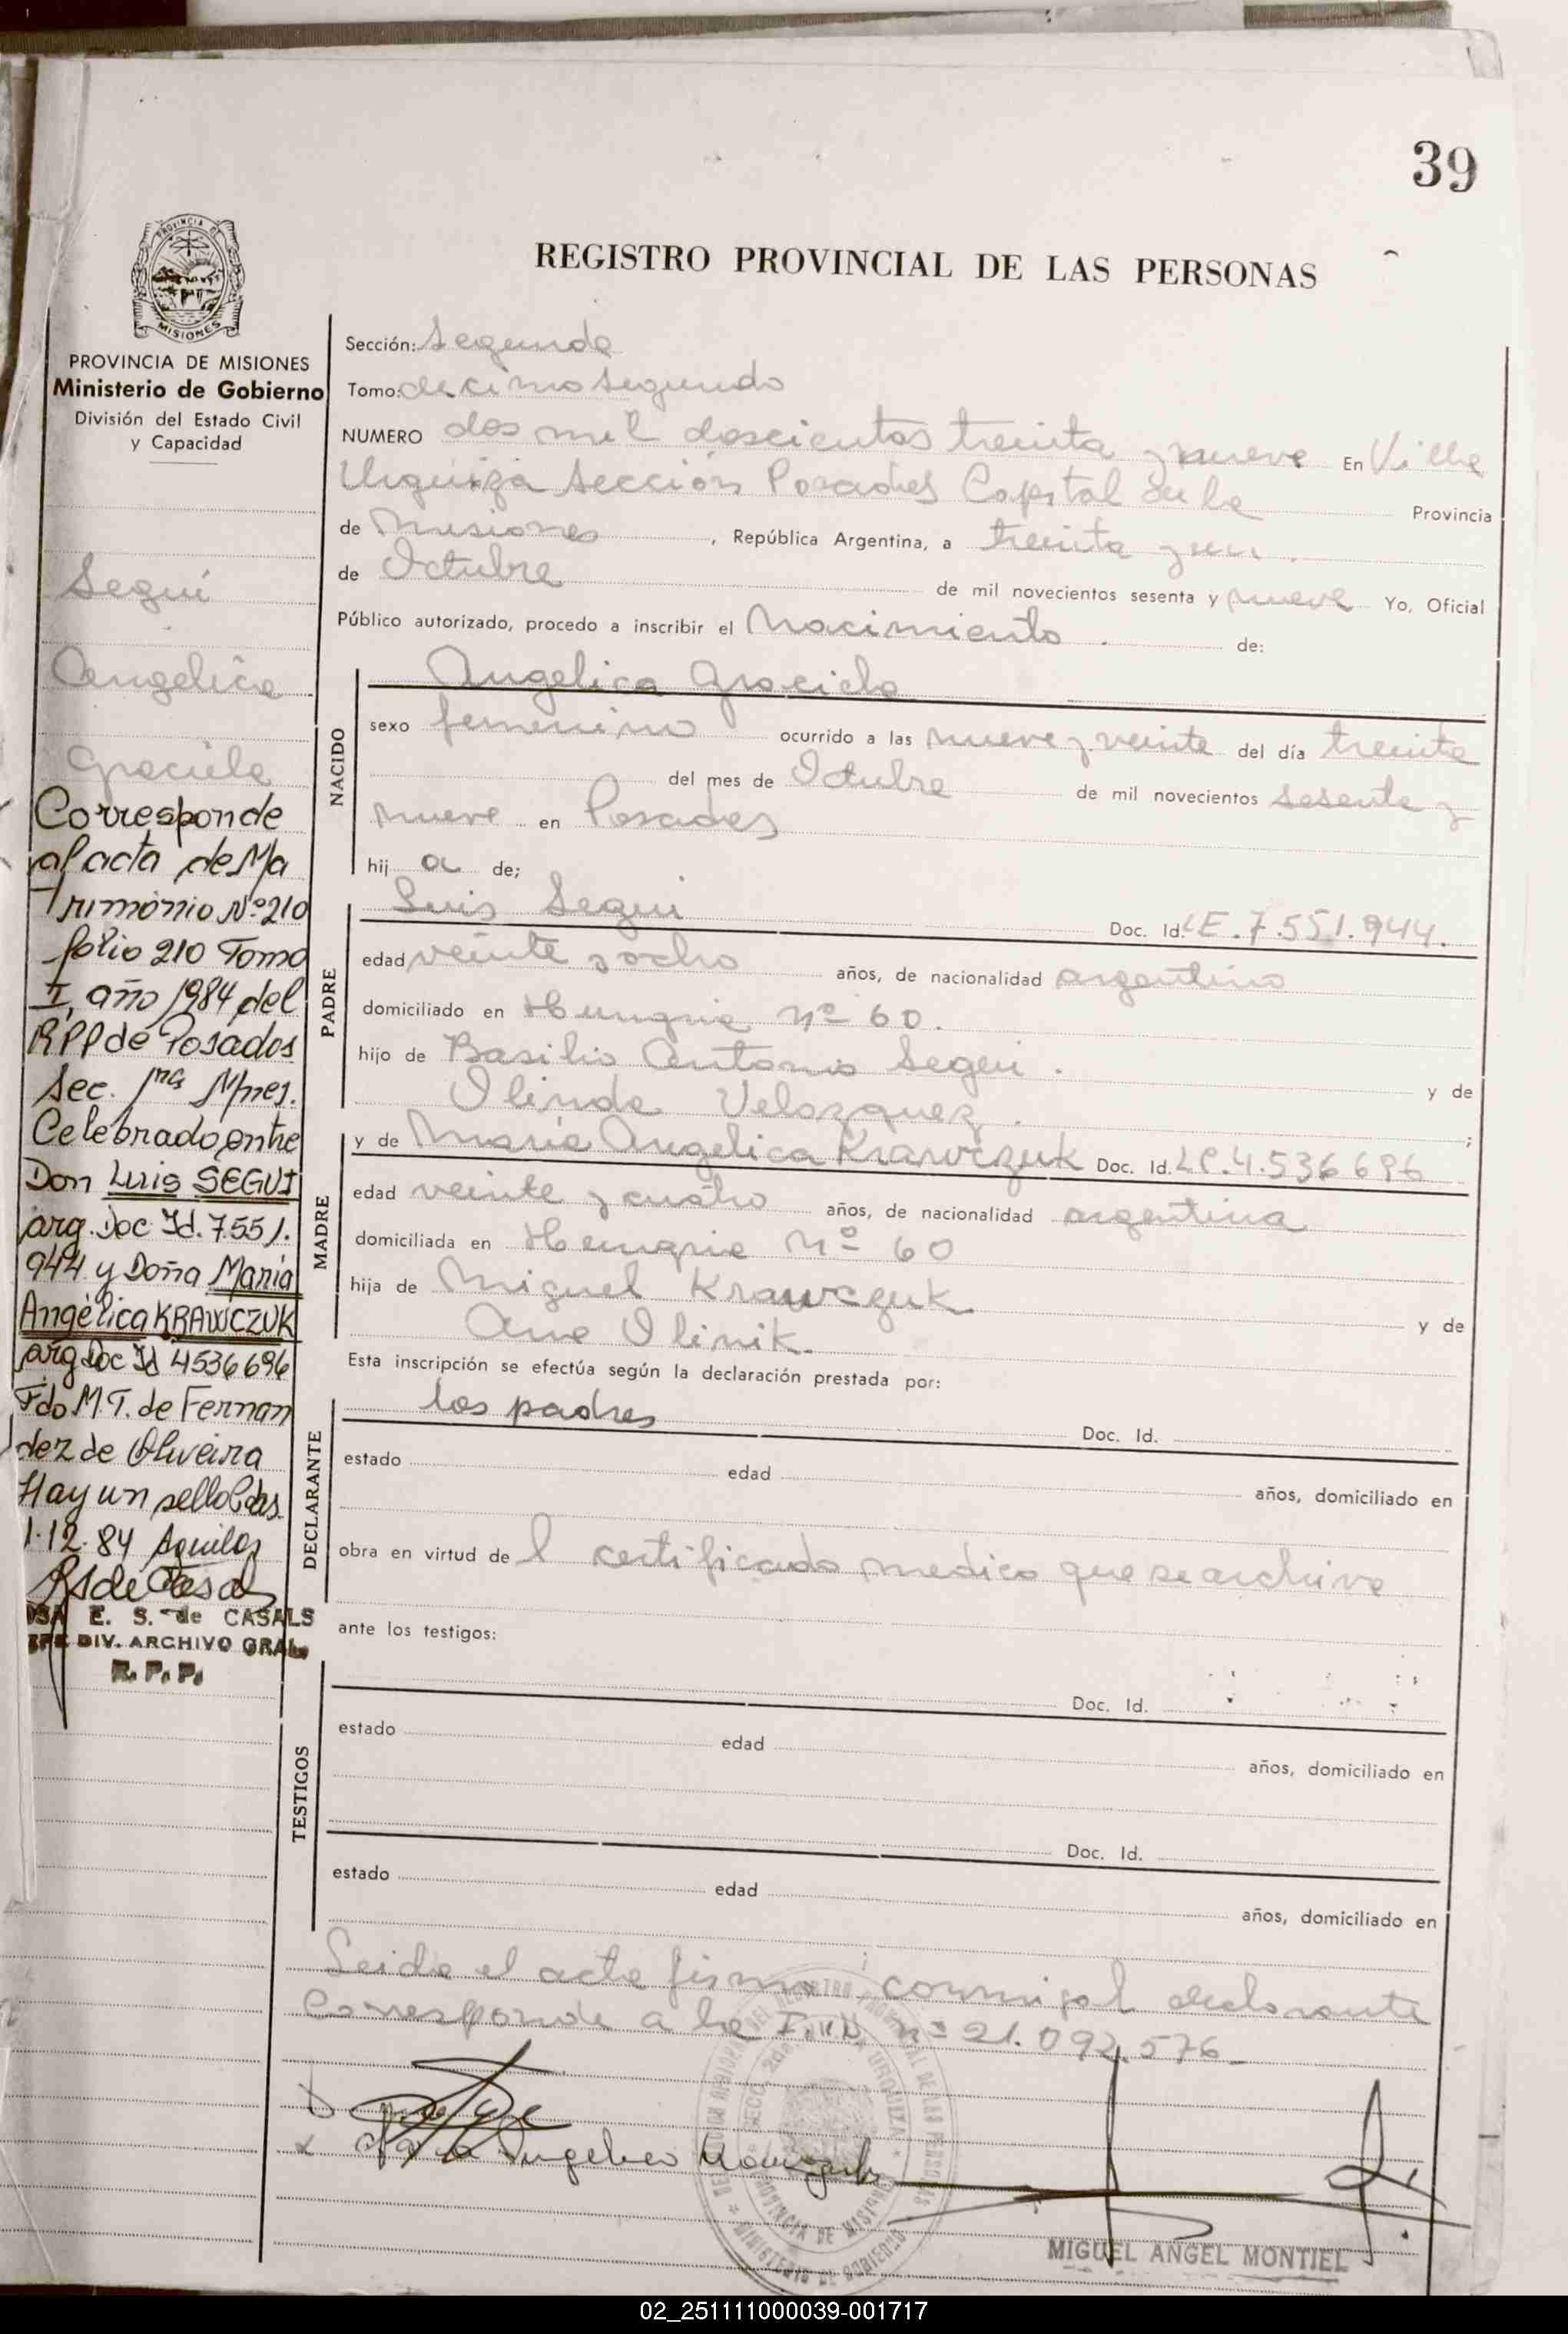 39
REGISTRO PROVINCIAL DE LAS PERSONAS
PROVINCIA DE MISIONES
PROVINCIA DE MISIONES
Ministerio de Gobierno
División del Estado Civil
y Capacidad
Segui
Angelica
Graciela
Corresponde
al acta de Ma
trimonio Nº 210
folio 210 Tomo
I, año 1984 del
R.P.P de Posadas
Sec. 1ra Mnes.
Celebrado entre
Don Luis SEGUI
arg. Doc Id. 7.551.
944 y Doña María
Angélica KRAWCZUK
arg Doc Id 4536696
Fdo M.T. de Fernan
dez de Oliveira
Hay un sello Pdas
1.12.84
E. S. de CASALS
DIV. ARCHIVO GRAL.
R. P. P.
Sección: Segunda
Tomo: decimo segundo
NUMERO dos mil doscientos treinta y nueve En Villa
Urquiza Sección Posadas Capital de la Provincia
de Misiones, República Argentina, a treinta y un
de Octubre de mil novecientos sesenta y nueve Yo, Oficial
Público autorizado, procedo a inscribir el Nacimiento de:
NACIDO
Angelica Graciela
sexo femenino ocurrido a las nueve y veinte del día treinta
del mes de Octubre de mil novecientos sesenta y
nueve en Posadas
hij a de;
PADRE
Luis Segui Doc. Id. LE.7.551.944.
edad veinte y ocho años, de nacionalidad argentino
domiciliado en Hungria nº 60.
hijo de Basilio Antonio Segui. y de
Olinda Velazquez. ;
MADRE
y de María Angelica Krawczuk Doc. Id. LC.4.536696
edad veinte y cuatro años, de nacionalidad argentina
domiciliada en Hungria nº 60
hija de Miguel Krawczuk y de
Ana Olinik.
Esta inscripción se efectúa según la declaración prestada por:
DECLARANTE
los padres Doc. Id.
estado edad años, domiciliado en
obra en virtud de l certificado medico que se archiva
ante los testigos:
TESTIGOS
Doc. Id.
estado edad años, domiciliado en
Doc. Id.
estado edad años, domiciliado en
Leida el acta firma conmigo el declarante
Corresponde a la nº 21.092.576
Angelica
MIGUEL ANGEL MONTIEL
02_251111000039-001717